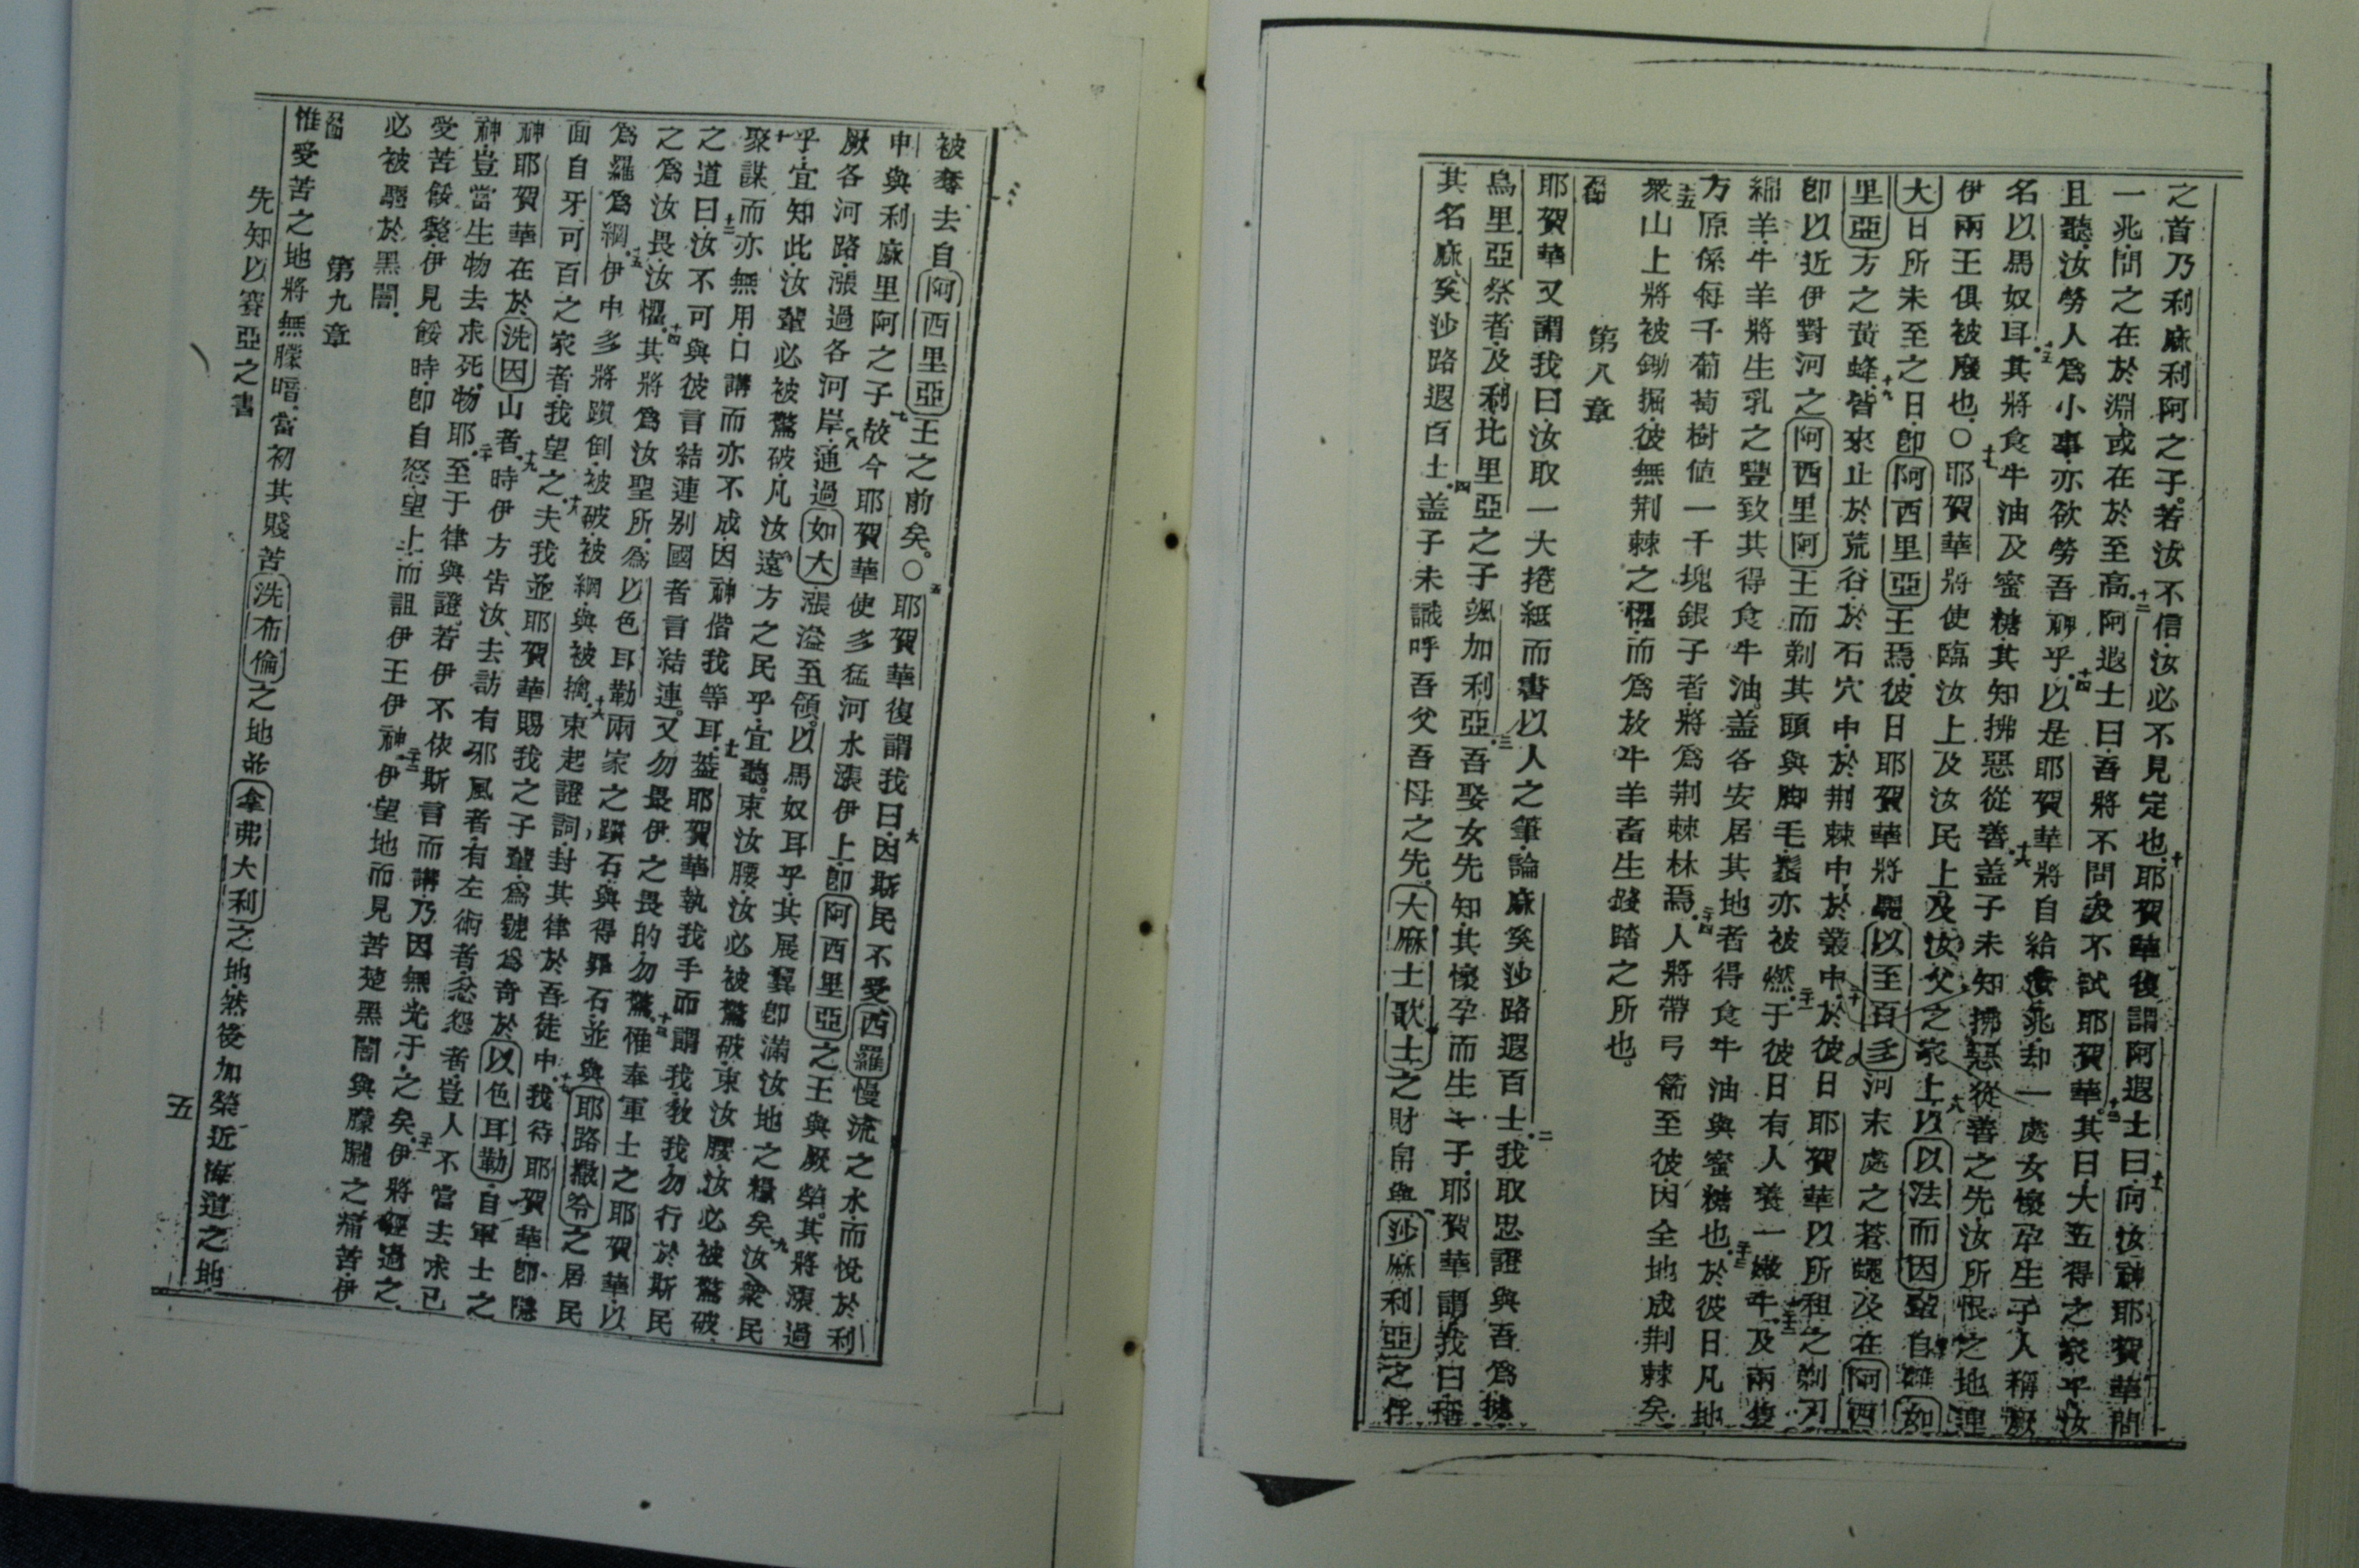 之首乃利麻利阿之子。若汝不信、汝必不見定也。十耶賀華復謂阿遐士曰、十一向汝神耶賀華問
一兆、問之在於淵、或在於至高。十二阿遐士曰、吾將不問、汝不試耶賀華。十三其曰、大五得之家乎、汝
且聽、汝勞人為小事、亦欲勞吾神乎。十四以是耶賀華將自給汝兆、却一處女懷孕生子、人稱厥
名以馬奴耳。十五其將食牛油及蜜糖、其知拂惡從善。十六盖子未知拂惡從善之先、汝所恨之地連
伊兩王俱被廢也。○十七耶賀華將使臨汝上及汝民上及汝父之家上、以以法而因 自離如
大日所未至之日、卽阿西里亞王焉。十八彼日耶賀華將 以至百多河末處之蒼蠅及在阿西
里亞方之黃蜂。十九皆來止於荒谷、於石穴中、於荆棘中、於叢中。二十於彼日耶賀華以所租之剃刀
卽以近伊對河之阿西里阿王而剃其頭與脚毛、鬚亦被燃。二十一于彼日有人養一嫩牛、及兩隻
綿羊。二十二牛羊將生乳之豐致其得食牛油。盖各安居其地者得食牛油與蜜糖也。二十三於彼日凡地
方原係每千葡萄樹値一千塊銀子者、將為荆棘林焉。二十四人將帶弓箭至彼、因全地成荆棘矣
二十五衆山上將被鋤掘、彼無荆棘之懼、而為放牛羊畜生踐踏之所也。
第八章
耶賀華又謂我曰、汝取一大捲紙而書以人之筆、論麻奚沙路遐百士。二我取忠證與吾為據
烏里亞祭者、及利比里亞之子颯加利亞。三吾娶女先知、其懷孕而生一子、耶賀華謂我曰、稱
其名麻奚沙路遐百士。四盖子未識呼吾父吾母之先、大麻士歌士之財帛與沙麻利亞之俘
被奪去自阿西里亞王之前矣。○五耶賀華復謂我曰、六因斯民不愛西羅慢流之水、而悅於利
申與利麻里阿之子。七故今耶賀華使多猛河水漲伊上、卽阿西里亞之王與厥榮。其將漲過
厥各河路、漲過各河岸。八通過如大漲溢至領。以馬奴耳乎、其展翼卽滿汝地之糧矣。九汝衆民
乎、宜知此、汝輩必被驚破、凡汝遠方之民乎、宜聽。束汝腰、汝必被驚破、束汝腰、汝必被驚破、
十聚謀而亦無用、口講而亦不成、因神偕我等耳。十一盖耶賀華執我手而謂我、教我勿行於斯民
之道曰、十二汝不可與彼言結連、别國者言結連。又勿畏伊之畏的、勿驚。十三惟奉軍士之耶賀華、以
之為汝畏、汝懼。十四其將為汝聖所、為以色耳勒兩家之躓石、與得罪石、並與耶路撒冷之居民
為羅為網。十五伊中多將躓倒、被破、被網與被擒。十六束起證詞、封其律於吾徒中。十七我待耶賀華、卽隱
面自牙可百之家者、我望之。十八夫我並耶賀華賜我之子輩、為號為奇於以色耳勒、自軍士之
神耶賀華在於洗因山者。十九時伊方告汝、去訪有邪風者、有左術者、忿怨者、豈人不當去求己
神、豈當生物去求死物耶。二十至于律與證。若伊不依斯言而講、乃因無光于之矣。二十一伊將經過之、
受苦餒斃、伊見餒時、卽自怒、望上而詛伊王伊神。二十二伊望地而見苦楚黑闇與朦朧之痛苦、伊
必被驅於黑闇。
第九章
惟受苦之地將無朦暗、當初其賤苦洗布倫之地並拿弗大利之地、然後加榮近海道之地
先知以賽亞之書
五